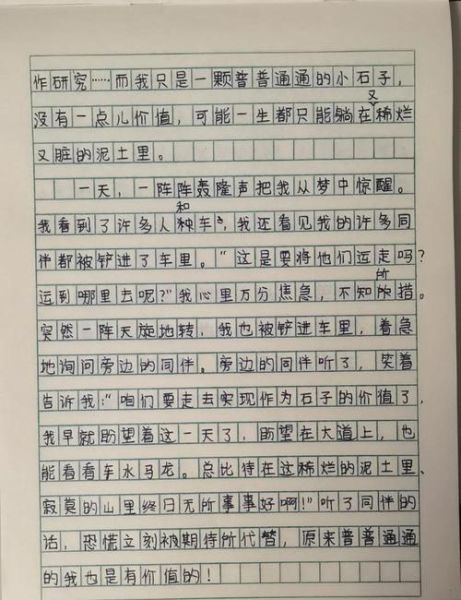 作研究……而我只是一颗普普通通的小石子，
没有一点儿价值，可能一生都只能躺在又稀烂
又脏的泥土里。
一天，一阵阵轰隆声把我从梦中惊醒。
我看到了许多人和车，我还看见我的许多同
伴都被铲进了车里。“这是要将他们运走吗？
运到哪里去呢？”我心里万分焦急，不知所措。
突然一阵天旋地转，我也被铲进车里，着急
地询问旁边的同伴。旁边的同伴听了，笑着
告诉我：“咱们要走去实现作为石子的价值了，
我早就盼望着这一天了，盼望在大道上，也
能看看车水马龙。总比待在这稀烂的泥土里、
寂寞的山里终日无所事事好啊！”听了同伴的
话，恐慌立刻被期待所代替，原来普普通通
的我也是有价值的！